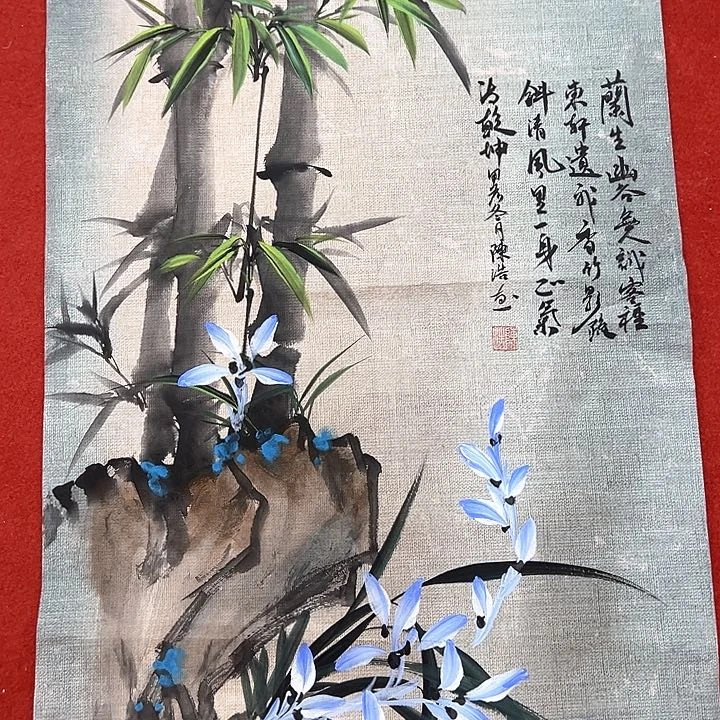 蘭生幽谷無人識客種
東軒遺我香竹影
斜清風里一身正氣
乾坤 甲辰冬月陳浩画